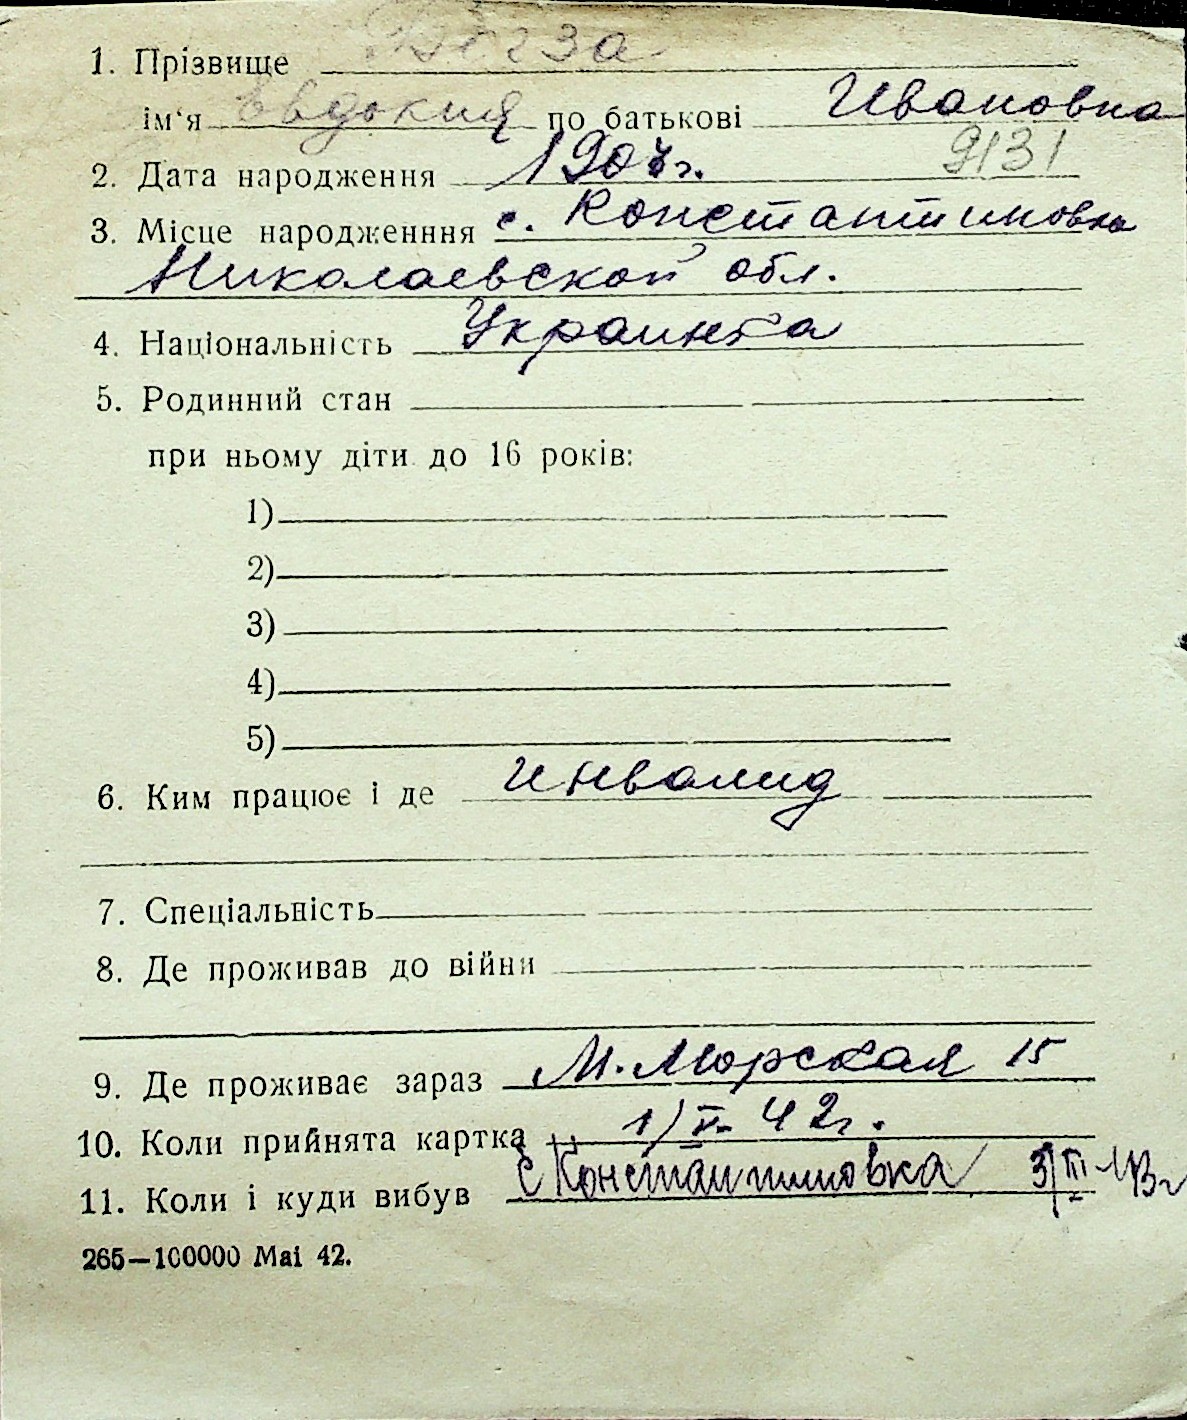 1. Прізвище
ім'я Евдокия по батькові Ивановна
2. Дата народження 1907г. 9131
3. Місце народженння с. Константиновка
Николаевской обл.
4. Національність Украинка
5. Родинний стан
при ньому діти до 16 років:
1)
2)
3)
4)
5)
6. Ким працює і де инвалид
7. Спеціальність
8. Де проживав до війни
9. Де проживає зараз М. Морская 15
10. Коли прийнята картка 1/V- 42г.
11. Коли і куди вибув с Константиновка 3/III-43г
265—100000 Mai 42.